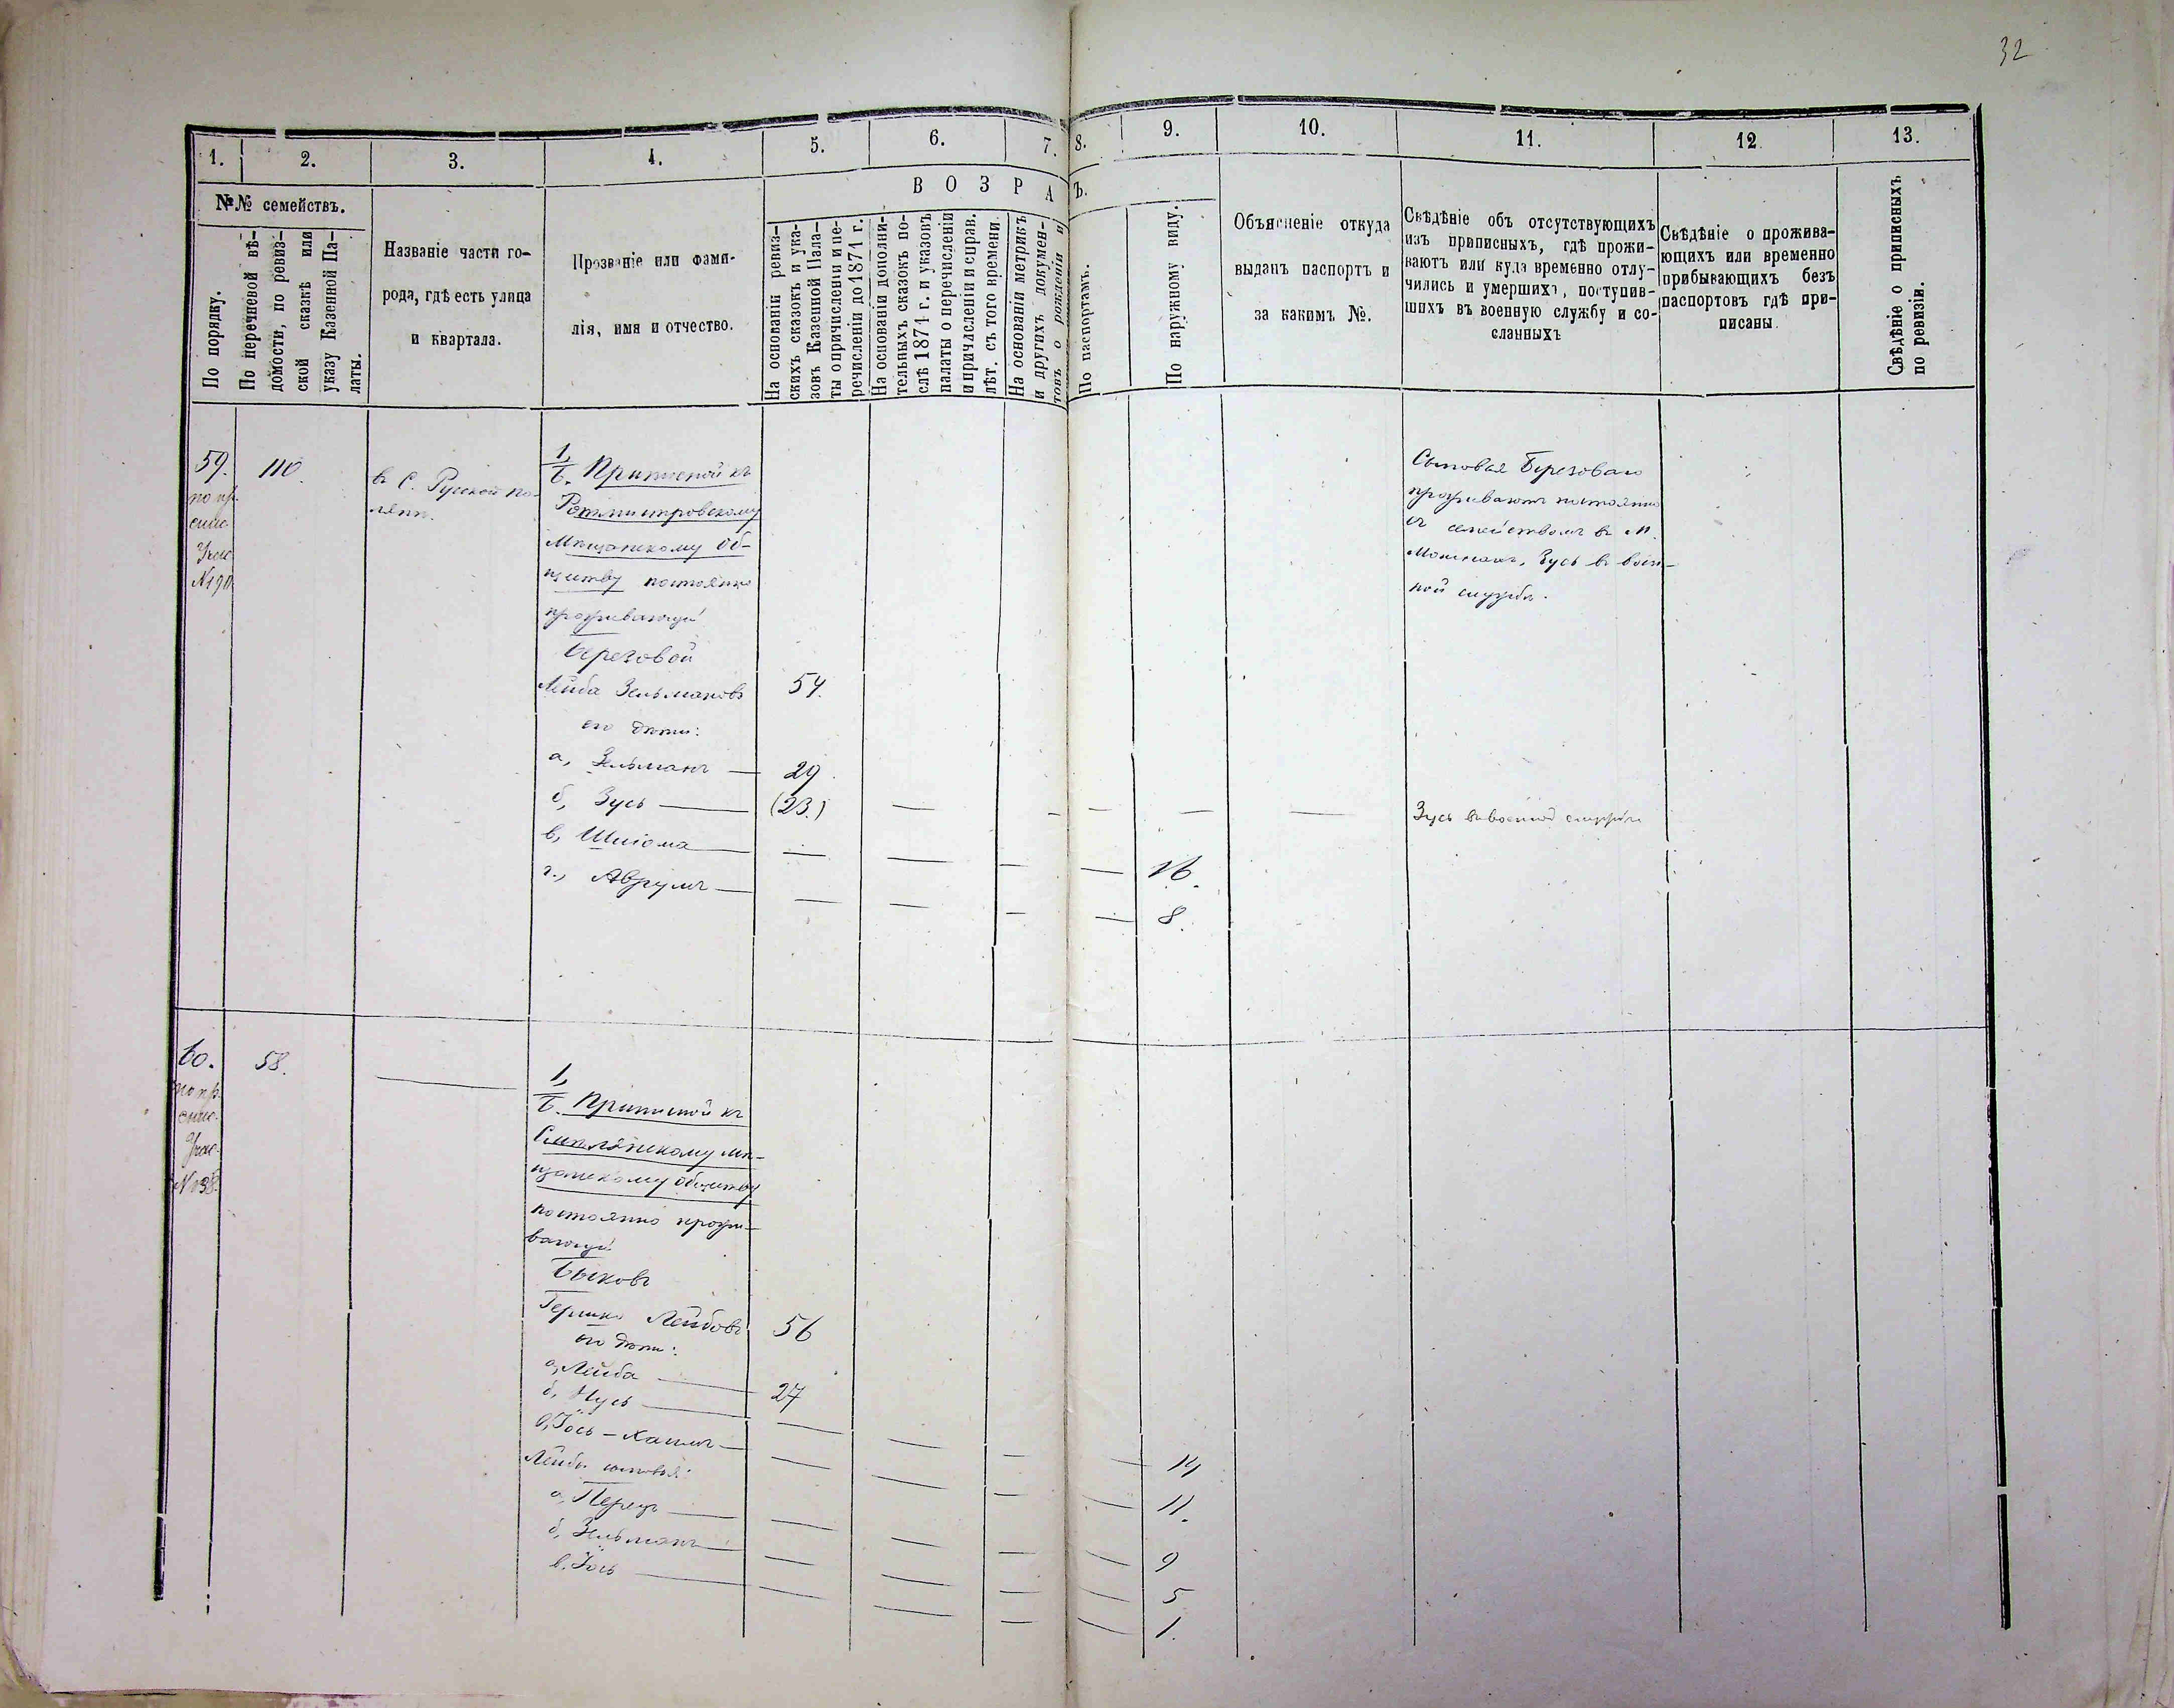 32
1.
2.
3.
4.
5.
6.
7.
8.
9.
10.
11.
12
13.
№№ семействъ.
ВОЗРА
Ъ.
По порядку.
По перечневой вѣ-
домости, по ревиз-
ской сказкѣ или
указу Казенной Па-
латы.
Названіе части го-
рода, гдѣ есть улица
и квартала.
Прозваніе или фами-
лія, имя и отчество.
На основаніи ревиз-
скихъ сказокъ и ука-
зовъ Казенной Пала-
ты о причисленіи и пе-
речисленіи до 1874 г.
На основаніи дополни-
тельныхъ сказокъ по-
слѣ 1874 г. и указовъ
палаты о перечисленіи
и причлсленіи и справ.
лѣт. съ того времени.
На основаніи метрикъ
и другихъ докумен-
товъ о рожденіи и
По паспортамъ.
По наружному виду.
Объясненіе откуда
выданъ паспортъ и
за какимъ №.
Свѣдѣніе объ отсутствующихъ
изъ приписныхъ, гдѣ прожи-
ваютъ или куда временно отлу-
чились и умершихъ, поступив-
шихъ въ военную службу и со-
сланныхъ
Свѣдѣніе о прожива-
ющихъ или временно
прибывающихъ безъ
паспортовъ гдѣ при-
писаны.
Свѣдѣніе о приписныхъ
по ревизіи.
59.
по пр.
спис.
Учас.
110.
въ С. Русской По-
лянѣ.
1,
Б. Приписной къ
Ротмистровскому
Мѣщанскому Об-
ществу постоянно
проживающій
Березовой
Лейба Зельмановъ 54.
его дѣти:
а, Зельманъ — 29
б, Зусь — (23.) — — — — —
в, Шліома — — — — — 16.
г., Аврумъ — — — — — 8.
Сыновья Березоваго
проживаютъ постоянно
съ семействомъ въ М.
Мошнахъ, Зусь въ воен-
ной службѣ.
Зусь въ военной службѣ
60.
по пр.
спис.
Учас.
№ 38.
58.
—
1,
Б. Приписной къ
Смѣлянскому мѣ-
щанскому обществу
постоянно прожи-
вающій
Быковъ
Гершко Лейбовъ 56
его дѣти:
а, Лейба — 27
б, Нусь — — — — — 14
в, Іось-Хаимъ — — — — — 11.
Лейбы сыновья:
а, Перецъ — — — — — 9
б, Зельманъ — — — — — 5
в. Іось — — — — — 1.